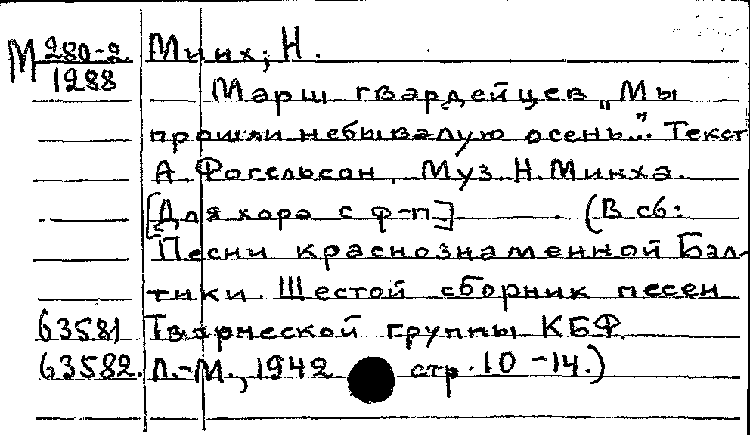 М 280-2 Минх, Н.
1288
Марш гвардейцев "Мы
прошли небывалую осень..." Текст
А. Фогельсон. Муз. Н. Минха.
[Для хора с ф-п] (В сб:
Песни краснознаменной Бал-
тики. Шестой сборник песен
63581 Творческой группы КБФ.
63582. Л.-М., 1942 стр. 10-14.)